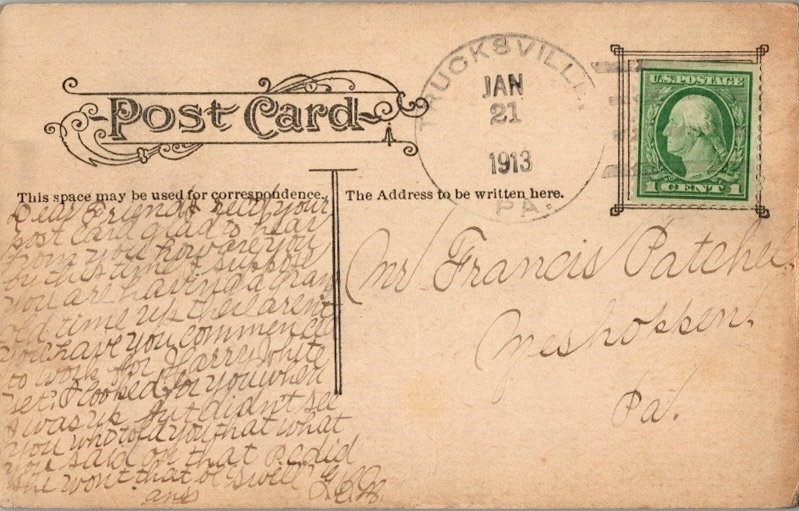 Post Card
TRUCKSVILLE,
JAN
21
1913
PA.
U.S. POSTAGE
1 CENT 1
This space may be used for correspondence.
The Address to be written here.
Dear Friend I rec'd your
post card glad to hear
from you how are you
by this time I suppose
you are having a gran
old time up there arent
you have you commence
to work for Harry White
yet. I looked for you when
I was up but didn't see
you who told you that what
you said on that
she won't that be swell
ans
Mr Francis Patchel,
Meshoppen,
Pa.